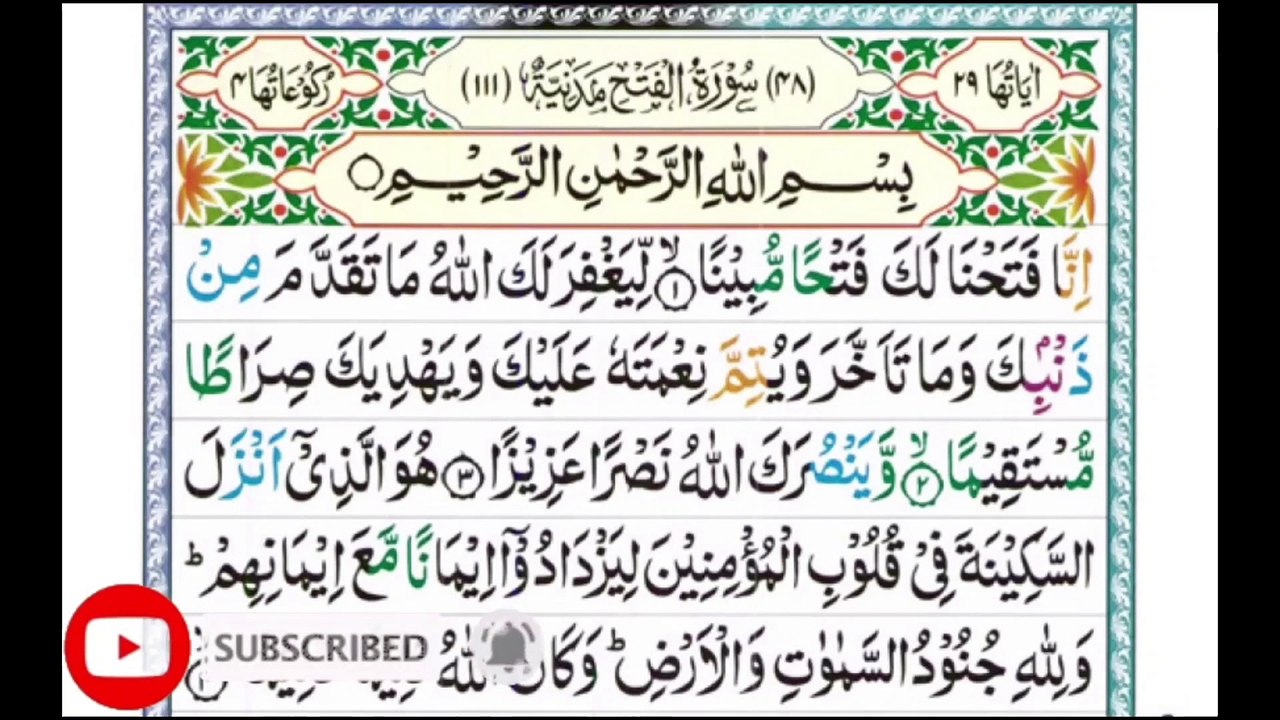 اٰيَاتُهَا ٢٩ (٤٨) سُوْرَةُ الْفَتْحِ مَدَنِيَّةٌ (١١١) رُكُوْعَاتُهَا ٤
بِسْمِ اللهِ الرَّحْمٰنِ الرَّحِيْمِ
اِنَّا فَتَحْنَا لَكَ فَتْحًا مُّبِيْنًا ۙ ١ لِّيَغْفِرَ لَكَ اللهُ مَا تَقَدَّمَ مِنْ
ذَنْۢبِكَ وَمَا تَاَخَّرَ وَيُتِمَّ نِعْمَتَهٗ عَلَيْكَ وَيَهْدِيَكَ صِرَاطًا
مُّسْتَقِيْمًا ۙ ٢ وَّيَنْصُرَكَ اللهُ نَصْرًا عَزِيْزًا ٣ هُوَ الَّذِيْۤ اَنْزَلَ
السَّكِيْنَةَ فِيْ قُلُوْبِ الْمُؤْمِنِيْنَ لِيَزْدَادُوْۤا اِيْمَانًا مَّعَ اِيْمَانِهِمْ ؕ
وَلِلهِ جُنُوْدُ السَّمٰوٰتِ وَالْاَرْضِ ؕ وَكَانَ اللهُ
SUBSCRIBED